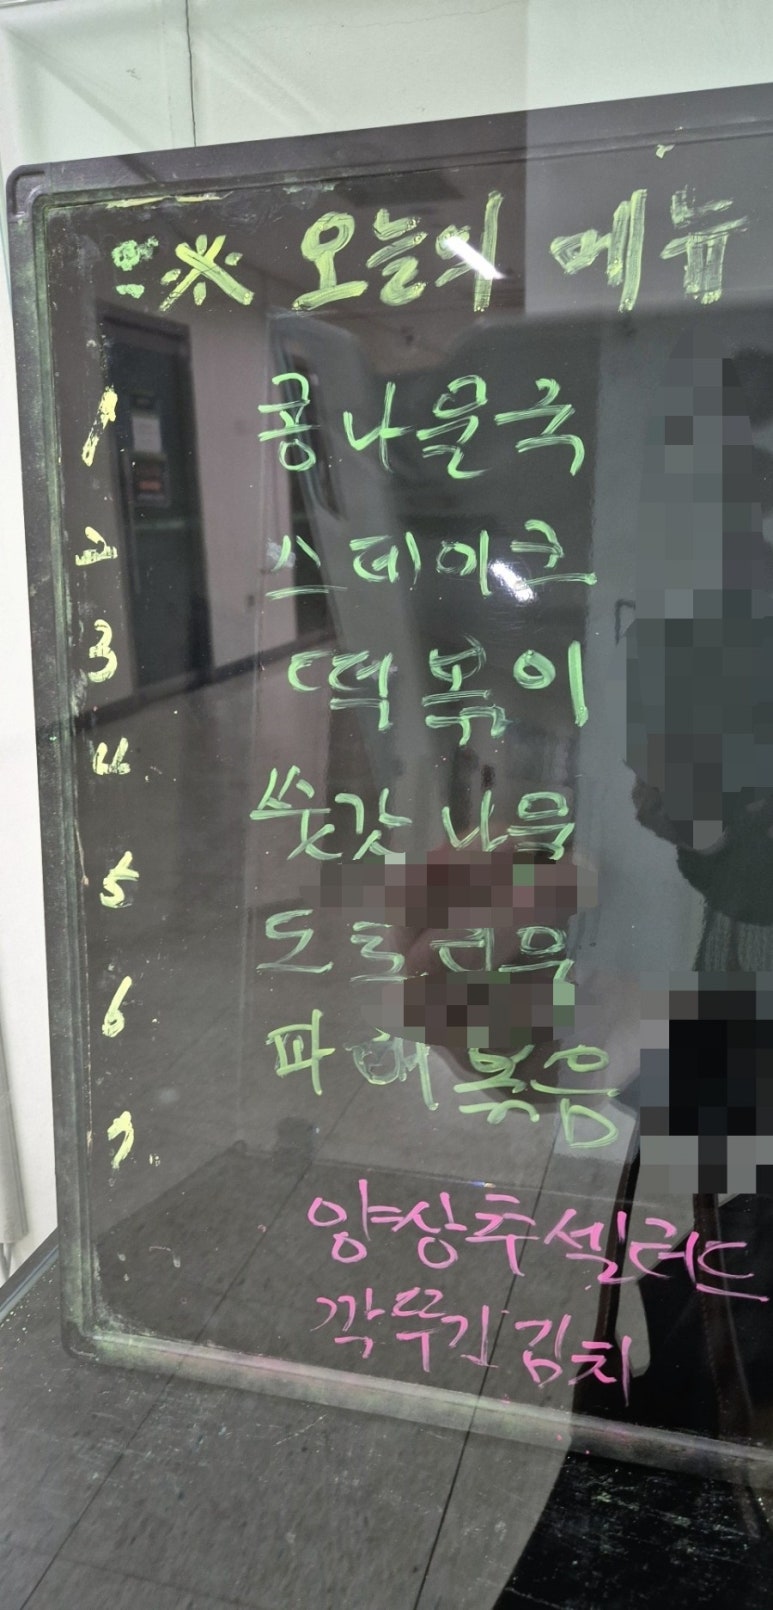 ※ 오늘의 메뉴
1 콩나물국
2 스테이크
3 떡볶이
4 쑥갓 나물
5 도토리묵
6 파래볶음
7.
양상추셀러드
깍뚜기 김치